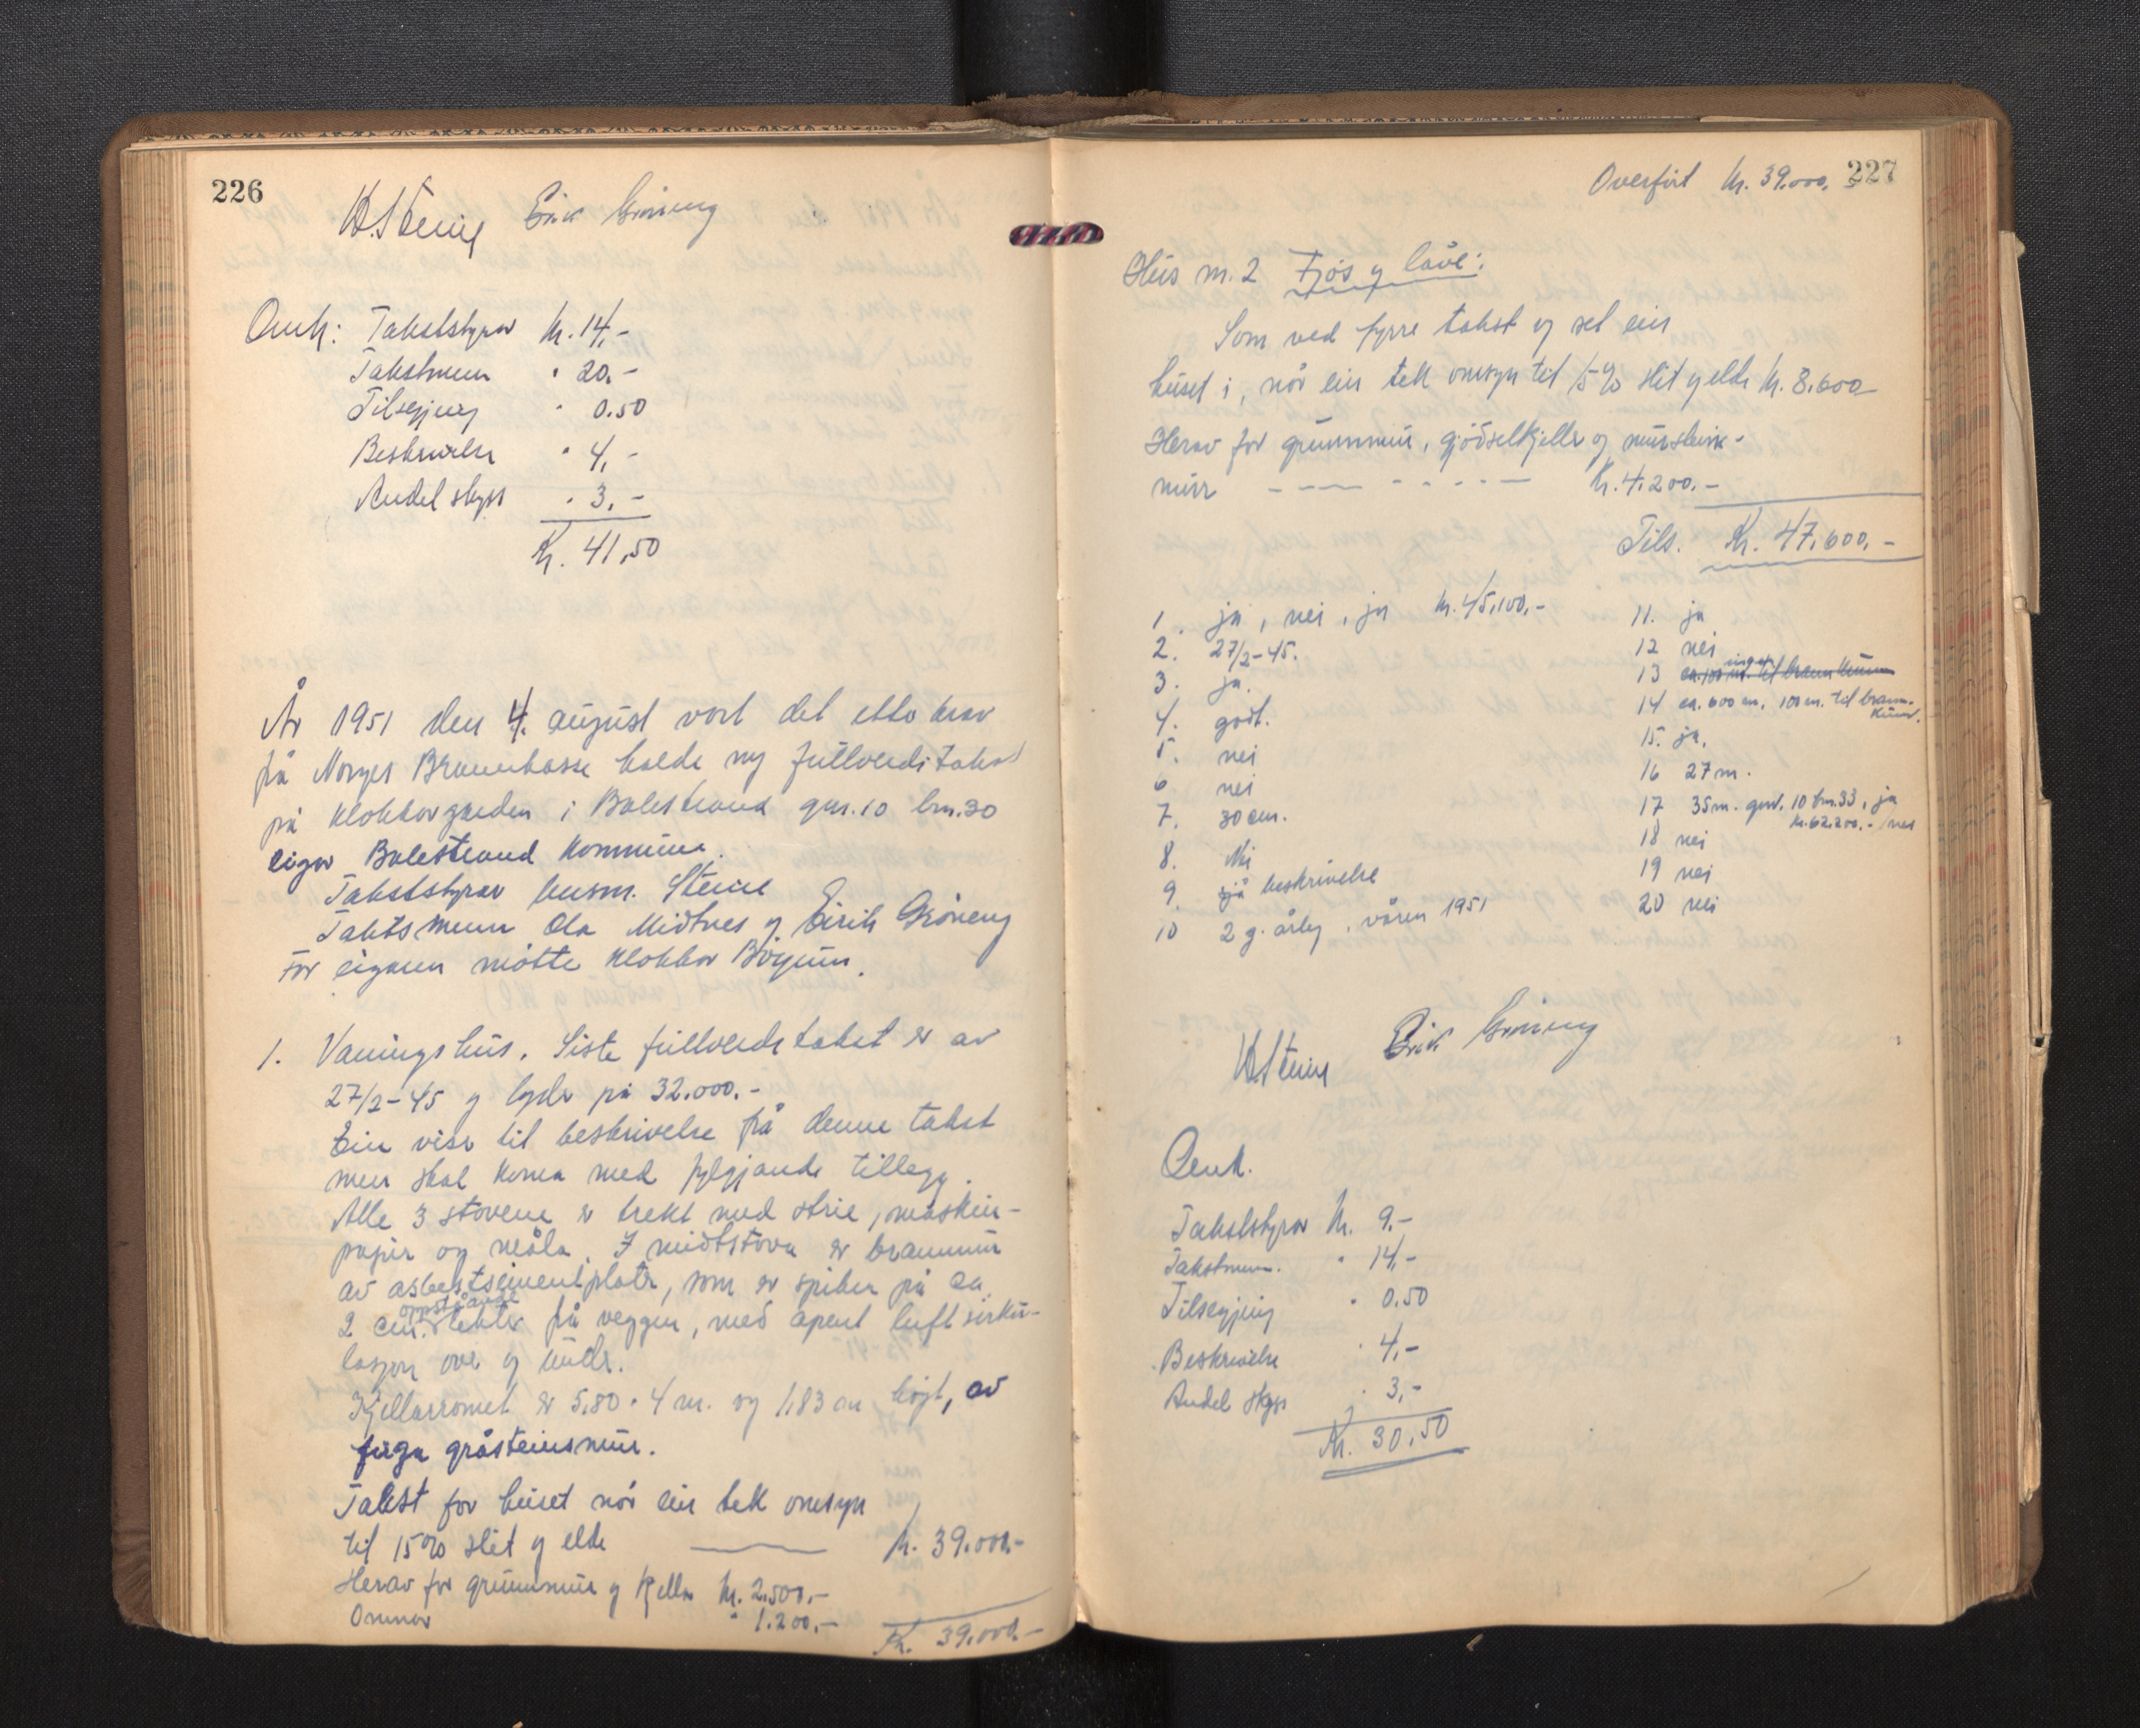 226
H. Steine Eirik Grøneng
Omk: Takststyrar kr. 14,-
Takstmenn " 20.-
Tilsegjing " 0.50
Beskrivelse " 4,-
Andel skyss " 3,-
Kr. 41,50
År 1951 den 4. august vart det etter krav
frå Norges Brannkasse halde ny fullverdi takst
på Klokkargarden i Balestrand gnr. 10 bnr. 30
eigar Balestrand Kommune.
Takststyrar lensm. Steine
Takstsmenn Ola Midtnes og Eirik Grøneng
For eigaren møtte klokkar Bøyum.
1. Vaningshus. Siste fullverdi takst er av
27/2-45 og lyder på 32.000.-
Ein viser til beskrivelse frå denne takst
men skal koma med fylgjande tillegg.
Alle 3 stovene er trekt med strie, maskin-
papir og måla. I midtstova er brannmur
av asbestsementplater, som er spikra på ca.
oppståande
2 cm. lekter frå veggen, med open luft sirku-
lasjon over og under.
Kjellarromet er 5,80 · 4 m. og 1,83 m høgt, av
fuga gråsteinsmur.
Takst for huset når ein tek omsyn
til 15% slit og elde kr. 39.000.-
Herav for grunnmur og kjellar kr. 2.500,-
Omnar " 1.200,-
Kr. 39.000.-
227
Overført kr. 39.000,
Hus nr. 2 Fjøs og låve:
Som ved fyrre takst og set ein
huset i, når ein tek omsyn til 15% slit og elde kr. 8.600
Herav for grunnmur, gjødselkjellar og murstein-
mur - - - - - - - Kr. 4.200.-
Tils. Kr. 47.600.-
1. ja, nei, ja kr. 45,100,-
2. 27/2-45.
3. ja.
4. godt.
5. nei
6 nei
7. 30 cm.
8. Nei
9. sjå beskrivelse
10 2 g. årleg, våren 1951
11. ja
12 nei
ingen
13 ca. 100 m. til brannkum
14 ca. 600 m. 100 m. til brann-
kum.
15. ja.
16 27 m.
17 35 m. gnr. 10 bnr. 33, ja
kr. 62.200.- / nei
18 nei
19 nei
20 nei
H. Steine Eirik Grøneng
Omk.
Takststyrar kr. 9.-
Takstmenn. " 14,-
Tilsegjing " 0.50
Beskrivelse " 4,-
Andel skyss " 3,-
Kr. 30,50